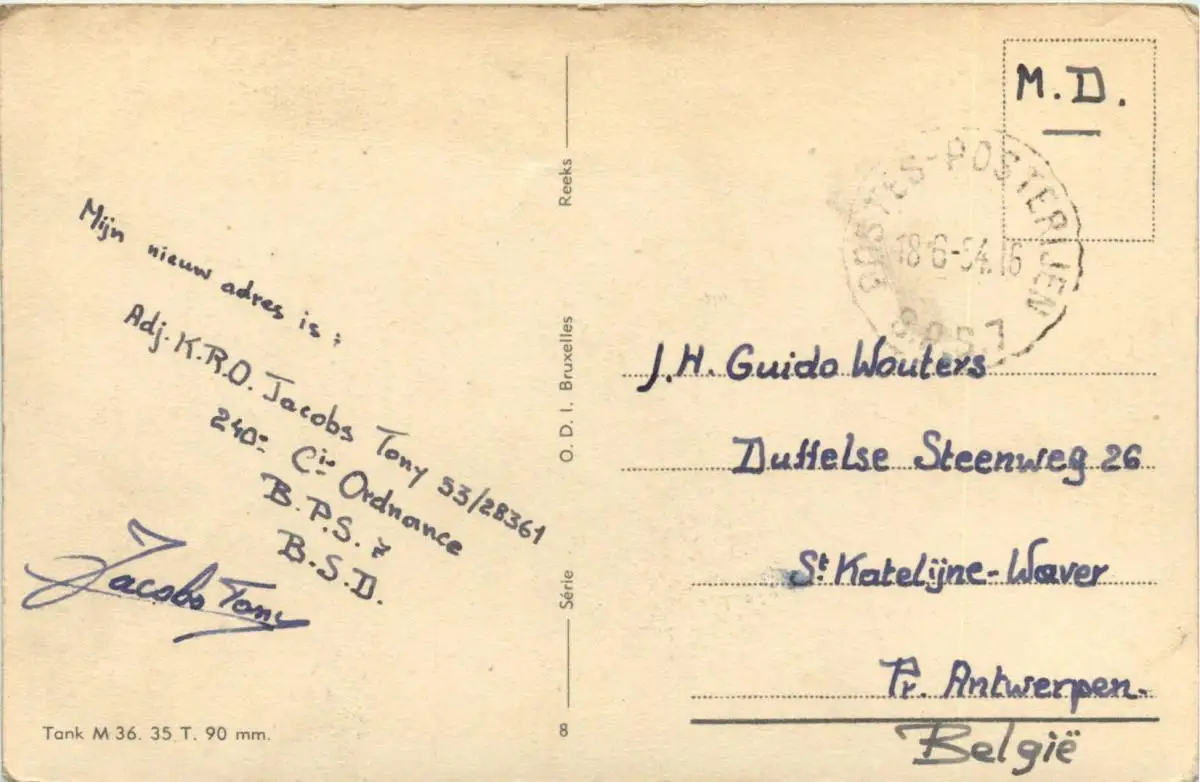 Mijn nieuw adres is :
Adj. K.R.O. Jacobs Tony 53/28361
240e Cie Ordnance
B.P.S. 7
B.S.D.
Jacobs Tony
Tank M 36. 35 T. 90 mm.
Série
8
O. D. I. Bruxelles
Reeks
M.D.
POSTES-POSTERIJEN
18-6-54.16
B.P.S.7
J.H. Guido Wouters
Duffelse Steenweg 26
St Katelijne-Waver
Pr. Antwerpen.
België